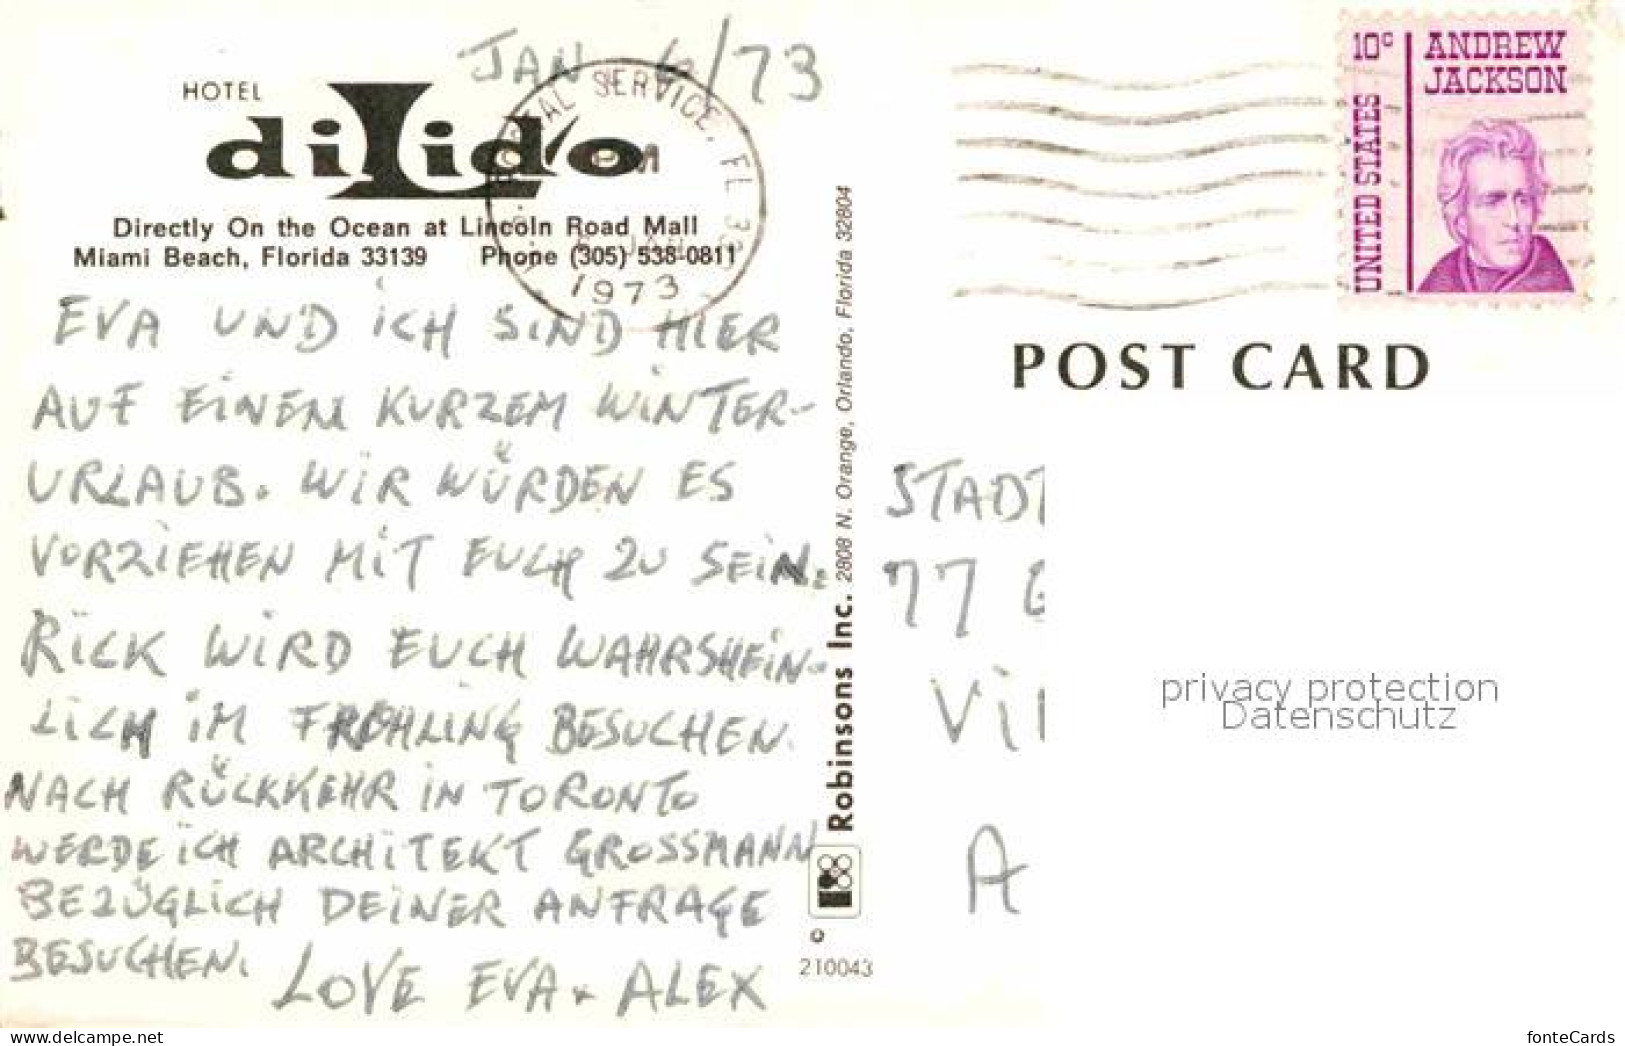 JAN 6/73
HOTEL
diLido
Directly On the Ocean at Lincoln Road Mall
Miami Beach, Florida 33139 Phone (305) 538-0811
POSTAL SERVICE, FL
PM
1973
EVA UND ICH SIND HIER
AUF EINEM KURZEM WINTER-
URLAUB. WIR WÜRDEN ES
VORZIEHEN MIT EUCH ZU SEIN.
RICK WIRD EUCH WAHRSHEIN-
LICH IM FRÜHLING BESUCHEN.
NACH RÜCKKEHR IN TORONTO
WERDE ICH ARCHITEKT GROSSMANN
BEZÜGLICH DEINER ANFRAGE
BESUCHEN.
LOVE EVA + ALEX
Robinsons Inc. 2808 N. Orange, Orlando, Florida 32804
©
210043
10c ANDREW
JACKSON
UNITED STATES
POST CARD
STADT
77
VI
A
privacy protection
Datenschutz
www.delcampe.net
fonteCards